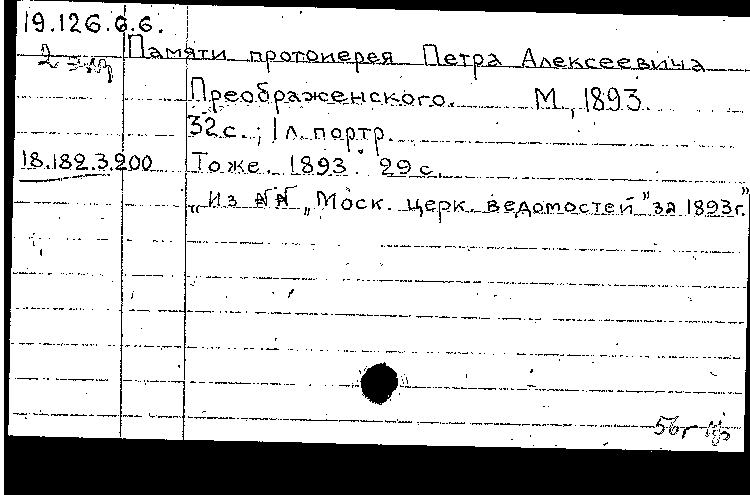 19.126.6.6.
2 экз
Памяти протоиерея Петра Алексеевича
Преображенского. М, 1893.
32 с.; 1 л. портр.
18.182.3.200 Тоже. 1893. 29 с.
„Из №№ „Моск. церк. ведомостей" за 1893г."
56г